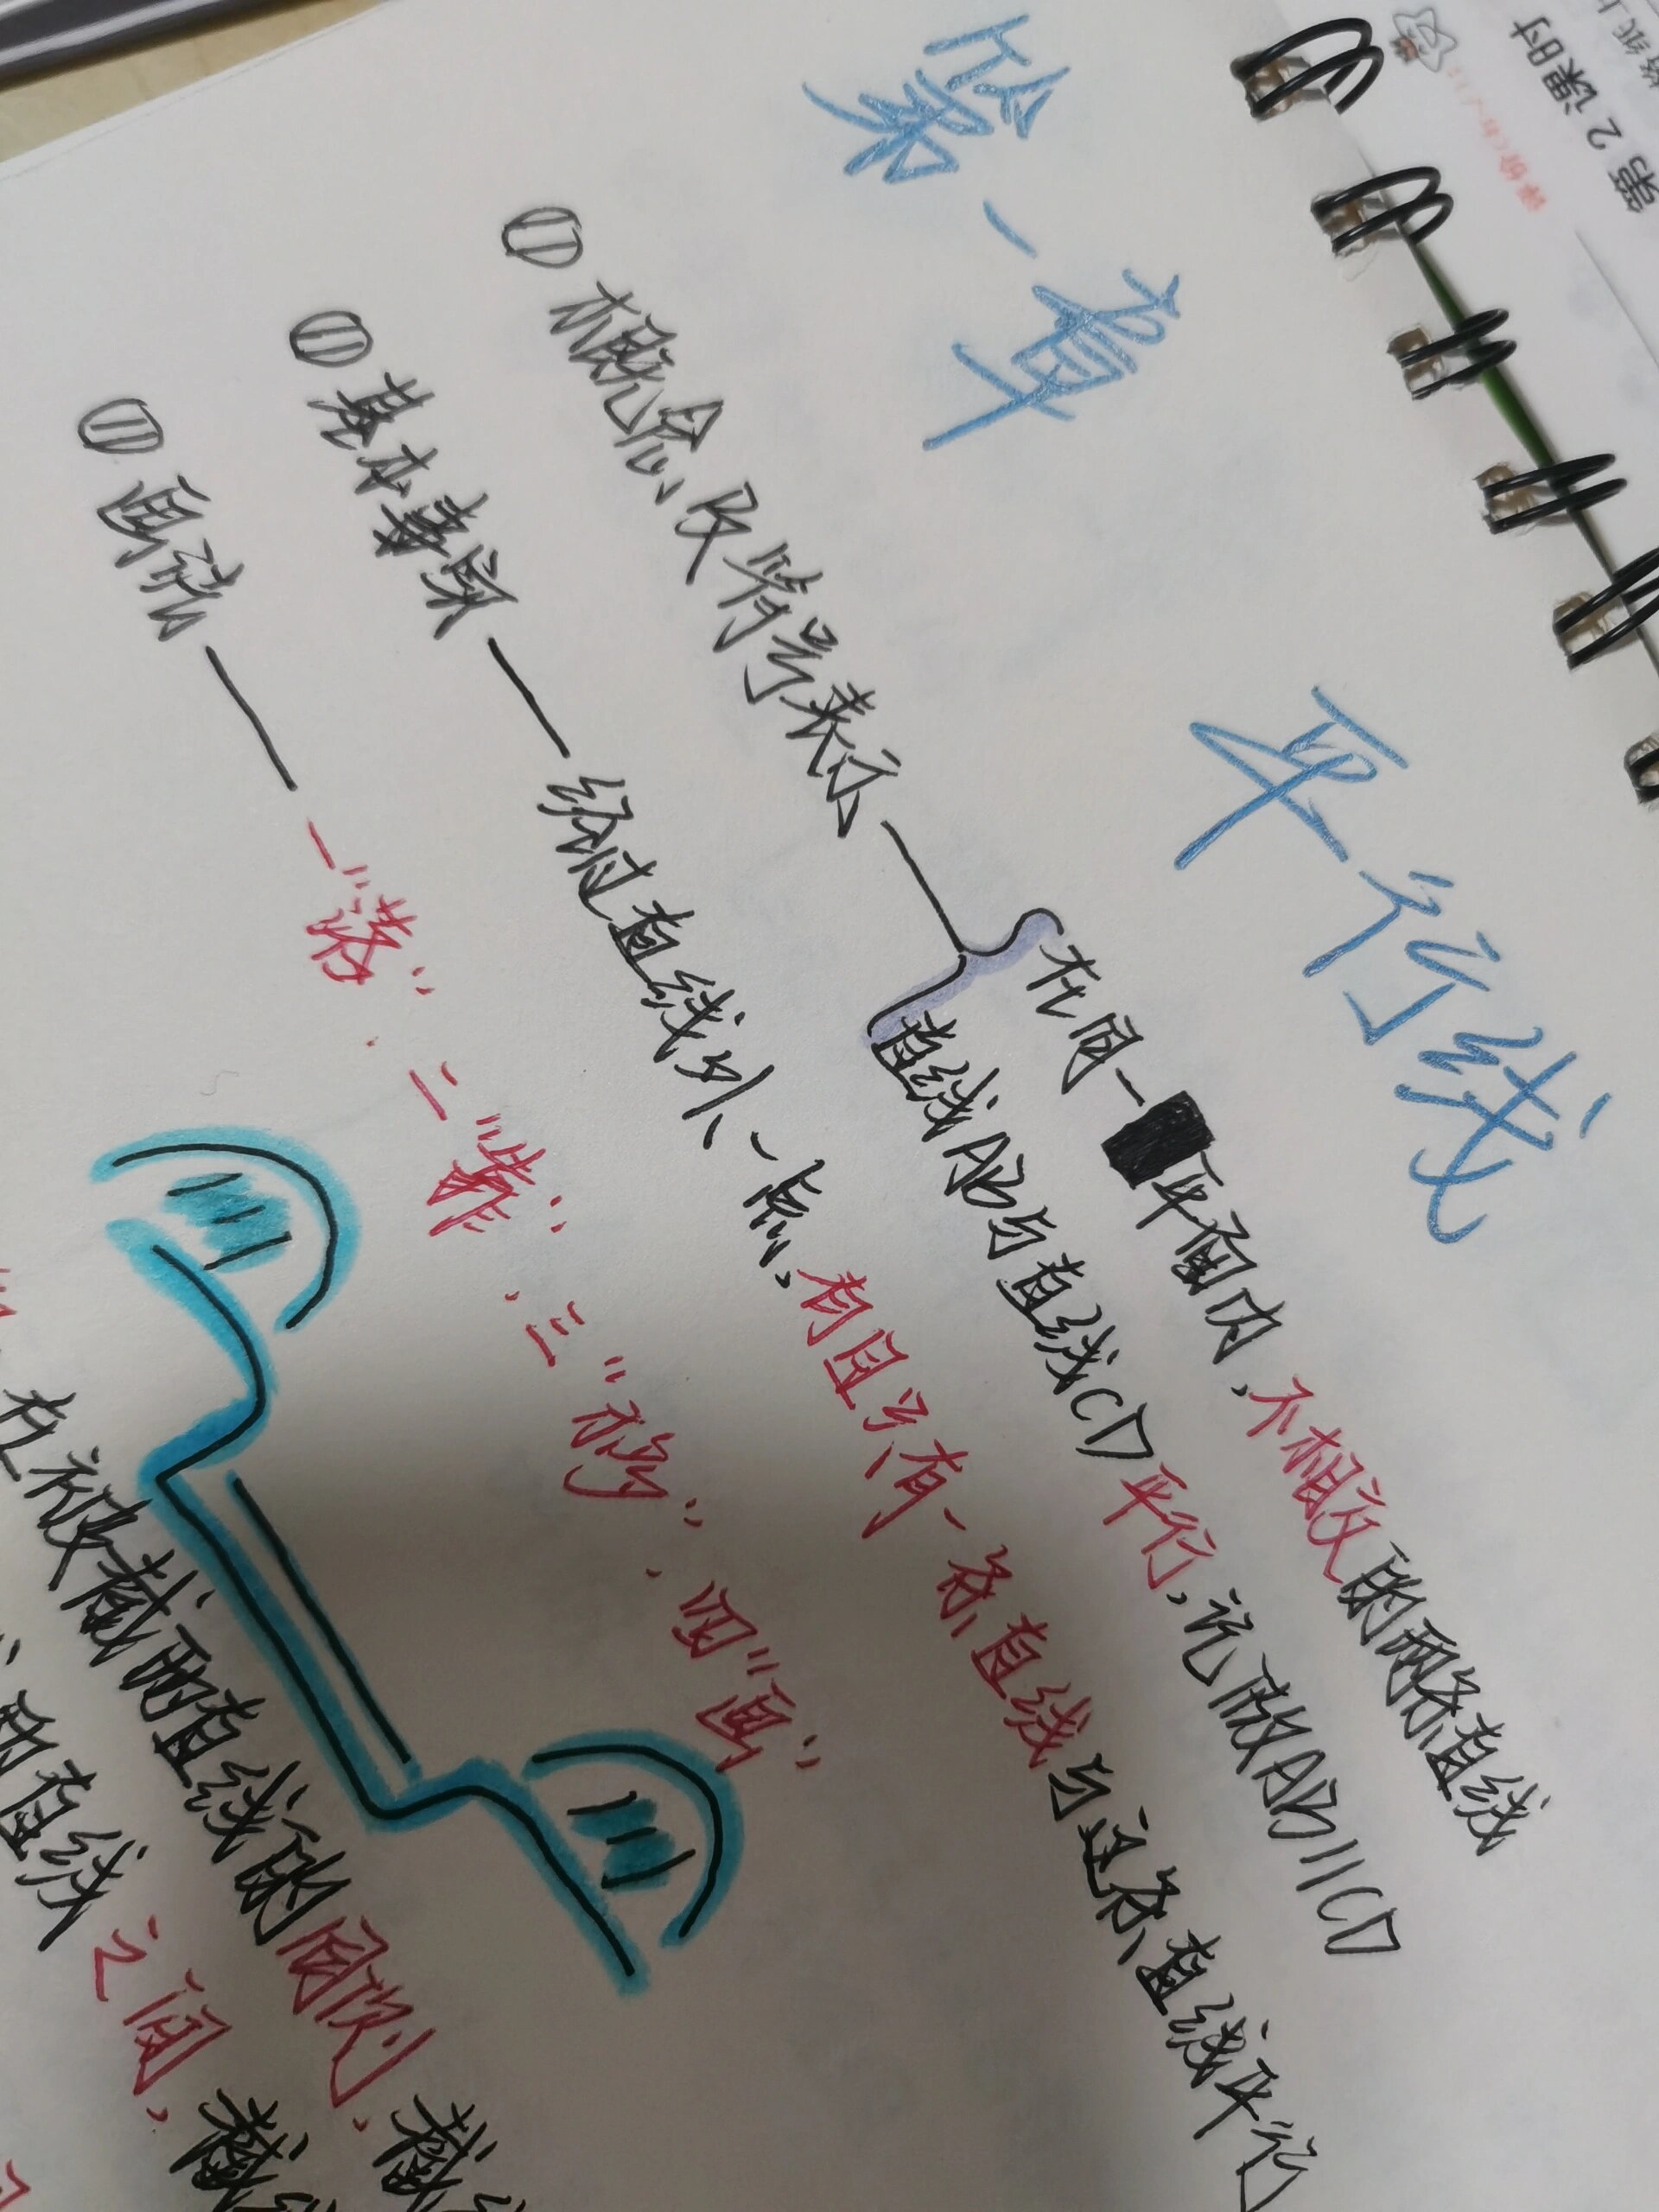 第2课时
第一章 平行线
① 概念及符号表示
在同一平面内,不相交的两条直线
直线AB与直线CD平行,记做AB∥CD
① 基本事实——经过直线外一点,有且只有一条直线与这条直线平行
① 画法——一"落"、二"靠"、三"移"、四"画"
在被截两直线的同侧,截
两直线之间,截线